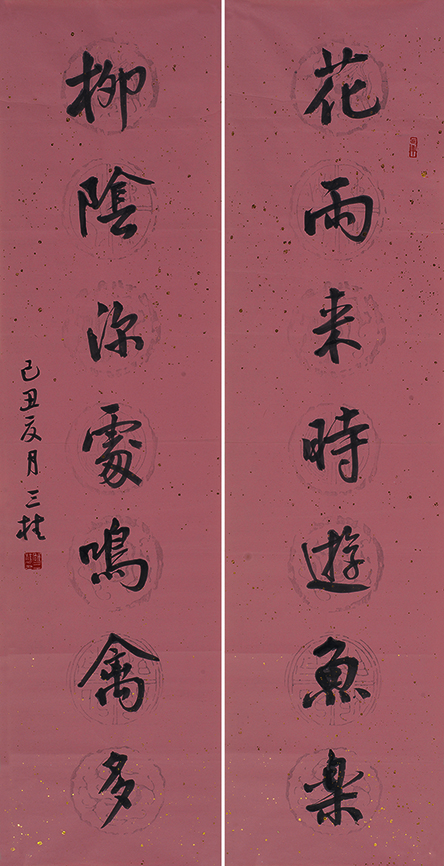 花雨来時遊魚楽
柳陰深處鳴禽多
己丑夏月三枝